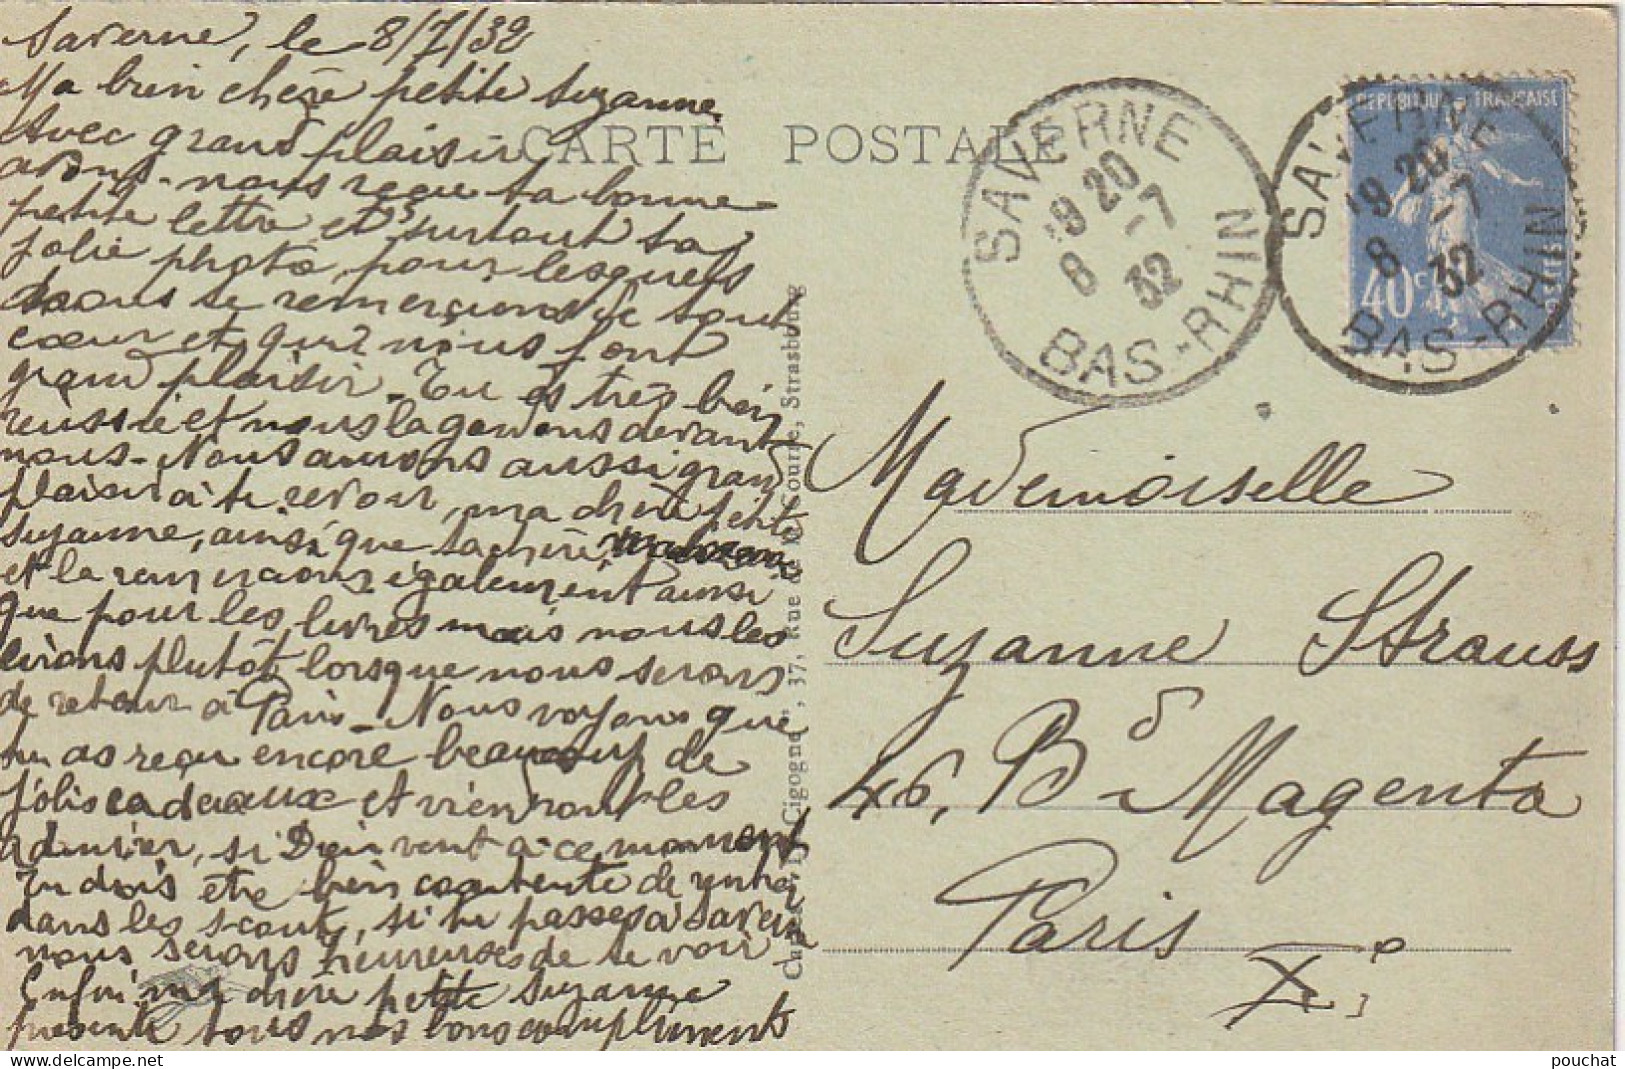 Saverne, le 8/7/32
Ma bien chère petite Suzanne,
Avec grand plaisir
avons-nous reçu ta bonne
petite lettre et surtout ta
jolie photo, pour lesquels
nous te remercions de tout
cœur et qui nous font
grand plaisir. Tu es très bien
réussie et nous la gardons devant
nous. Nous aurons aussi grand
plaisir à te revoir, ma chère petite
Suzanne, ainsi que ta chère
et la remercions également ainsi
que pour les livres mais nous les
lirons plutôt lorsque nous serons
de retour à Paris. Nous voyons que
tu as reçu encore beaucoup de
jolis cadeaux et viendront les
admirer, si Dieu veut à ce moment
Tu dois être bien contente de rentrer
dans les scouts, si tu passes à Saverne
nous serons heureuses de te voir
Enfin ma chère petite Suzanne
présente tous nos bons compliments
CARTE POSTALE
Cigogne", 37, Rue de la Course, Strasbourg
SAVERNE
19 20
8 -7
32
BAS-RHIN
SAVERNE
19 20
8 -7
32
BAS-RHIN
REPUBLIQUE FRANÇAISE
40c
POSTES
Mademoiselle
Suzanne Strauss
46, Bd Magenta
Paris
Xe
pouchat